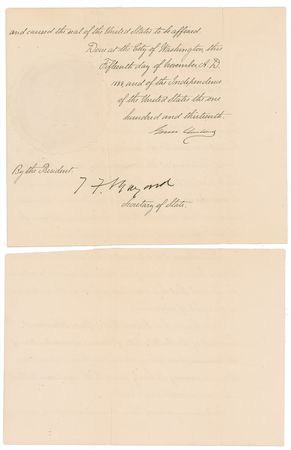 and caused the seal of the United States to be affixed.
Done at the City of Washington, this
Fifteenth day of November A.D.
and of the Independence
of the United States the one
hundred and thirteenth.
Grover Cleveland
By the President:
T. F. Bayard
Secretary of State.